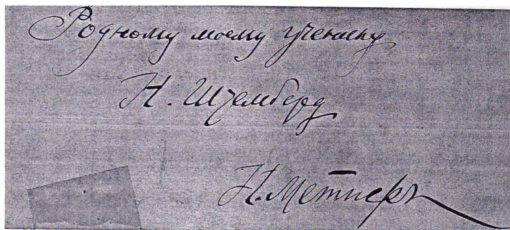 Родному моему ученику
Н. Штемберу
Н. Метнеръ